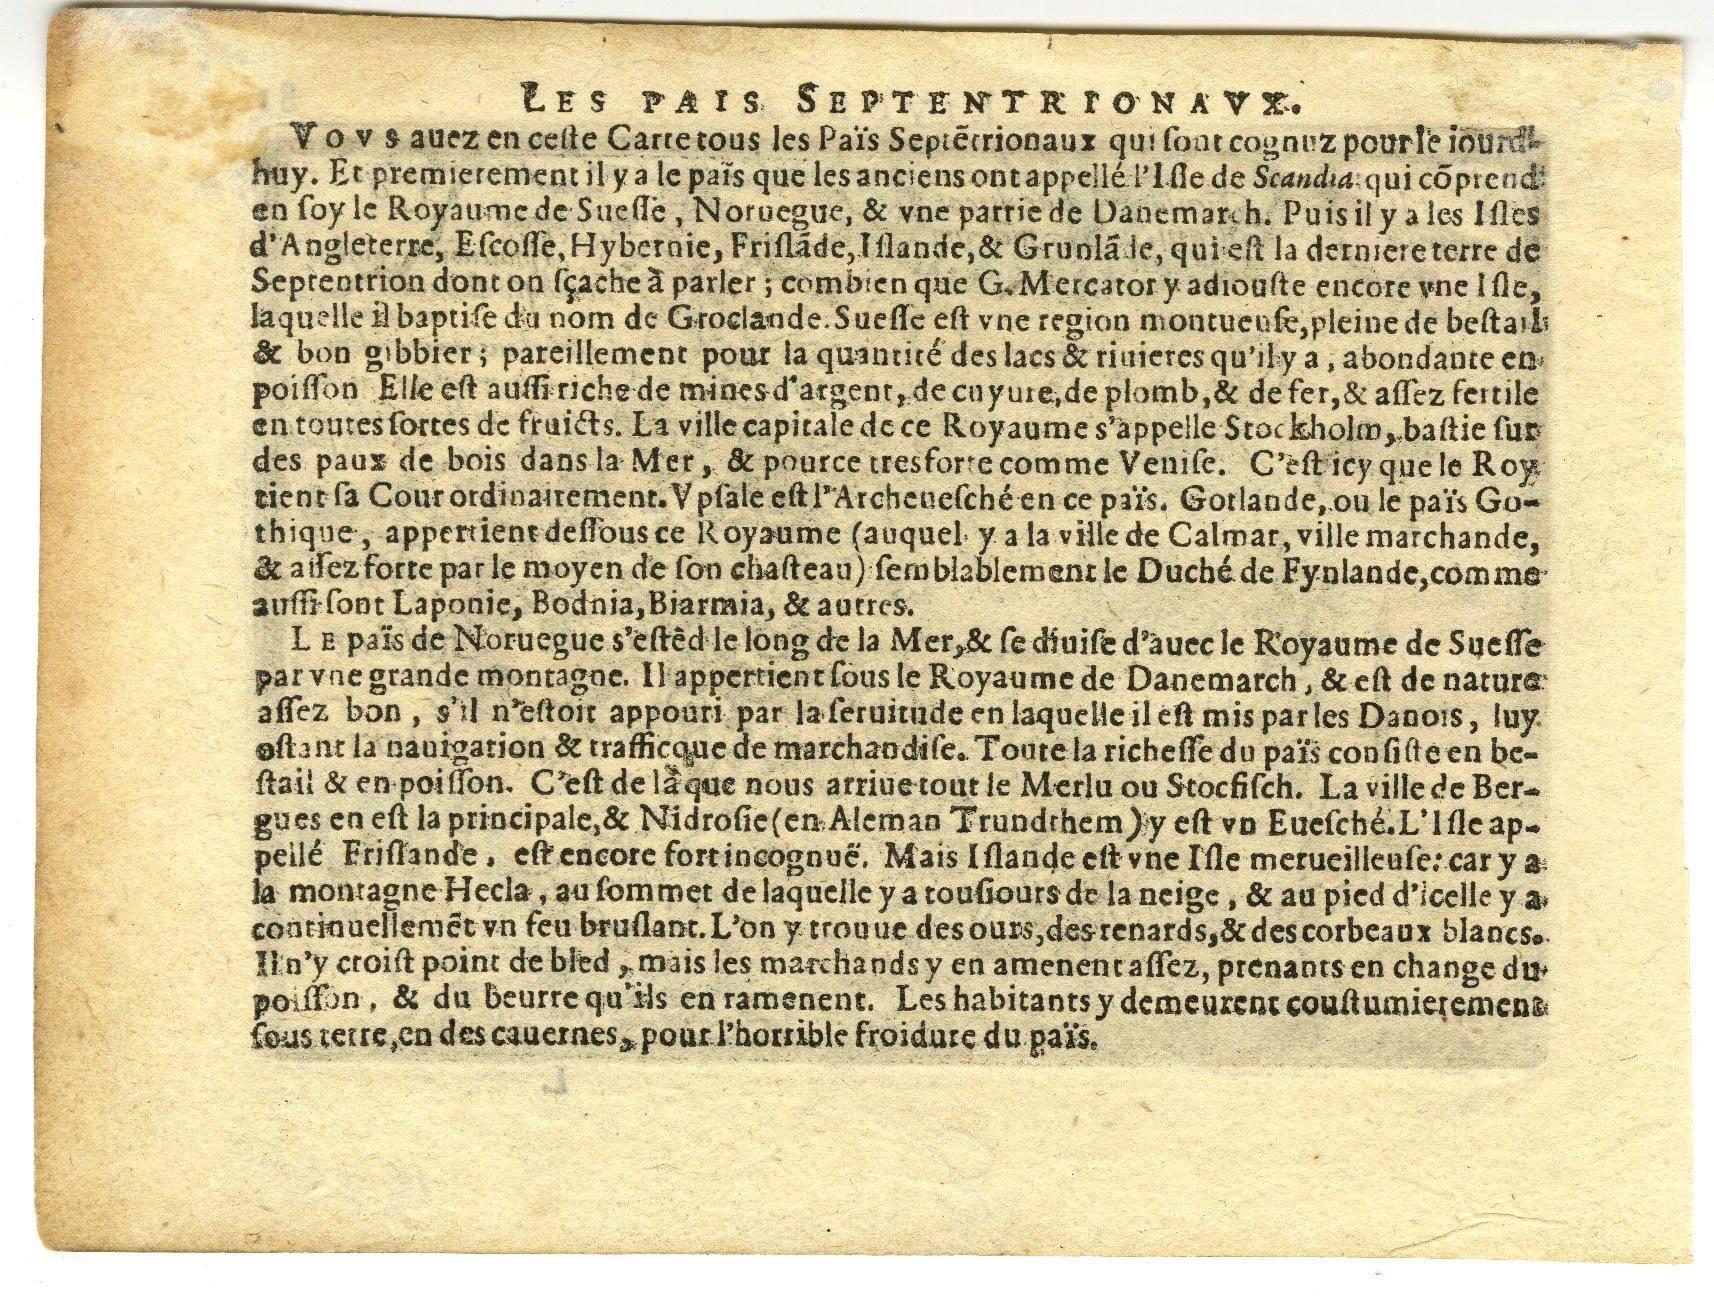 LES PAIS SEPTENTRIONAVX.
VOVS auez en ceſte Carte tous les Païs Septẽtrionaux qui ſont cognuz pour le iourd'-
huy. Et premierement il y a le païs que les anciens ont appellé l'Iſle de Scandia: qui cõprend
en ſoy le Royaume de Sueſſe, Noruegue, & vne partie de Danemarch. Puis il y a les Iſles
d'Angleterre, Eſcoſſe, Hybernie, Friſlãde, Iſlande, & Grunlãde, qui eſt la derniere terre de
Septentrion dont on ſçache à parler; combien que G. Mercator y adiouſte encore vne Iſle,
laquelle il baptiſe du nom de Groclande. Sueſſe eſt vne region montueuſe, pleine de beſtail
& bon gibbier; pareillement pour la quantité des lacs & riuieres qu'il y a, abondante en
poiſſon Elle eſt auſſi riche de mines d'argent, de cuyure, de plomb, & de fer, & aſſez fertile
en toutes ſortes de fruicts. La ville capitale de ce Royaume s'appelle Stockholm, baſtie ſur
des paux de bois dans la Mer, & pource tresforte comme Veniſe. C'eſt icy que le Roy
tient ſa Cour ordinairement. Vpſale eſt l'Archeueſché en ce païs. Gotlande, ou le païs Go-
thique, appertient deſſous ce Royaume (auquel y a la ville de Calmar, ville marchande,
& aſſez forte par le moyen de ſon chaſteau) ſemblablement le Duché de Fynlande, comme
auſſi ſont Laponie, Bodnia, Biarmia, & autres.
LE païs de Noruegue s'eſtẽd le long de la Mer, & ſe diuiſe d'auec le Royaume de Sueſſe
par vne grande montagne. Il appertient ſous le Royaume de Danemarch, & eſt de nature
aſſez bon, s'il n'eſtoit appouri par la ſeruitude en laquelle il eſt mis par les Danois, luy
oſtant la nauigation & trafficque de marchandiſe. Toute la richeſſe du païs conſiſte en be-
ſtail & en poiſſon. C'eſt de là que nous arriue tout le Merlu ou Stocfiſch. La ville de Ber-
gues en eſt la principale, & Nidroſie (en Aleman Trundthem) y eſt vn Eueſché. L'Iſle ap-
pellé Friſlande, eſt encore fort incognuë. Mais Iſlande eſt vne Iſle merueilleuſe: car y a
la montagne Hecla, au ſommet de laquelle y a touſiours de la neige, & au pied d'icelle y a
continuellemẽt vn feu bruſlant. L'on y trouue des ours, des renards, & des corbeaux blancs.
Il n'y croiſt point de bled, mais les marchands y en amenent aſſez, prenants en change du
poiſſon, & du beurre qu'ils en ramenent. Les habitants y demeurent couſtumierement
ſous terre, en des cauernes, pour l'horrible froidure du païs.